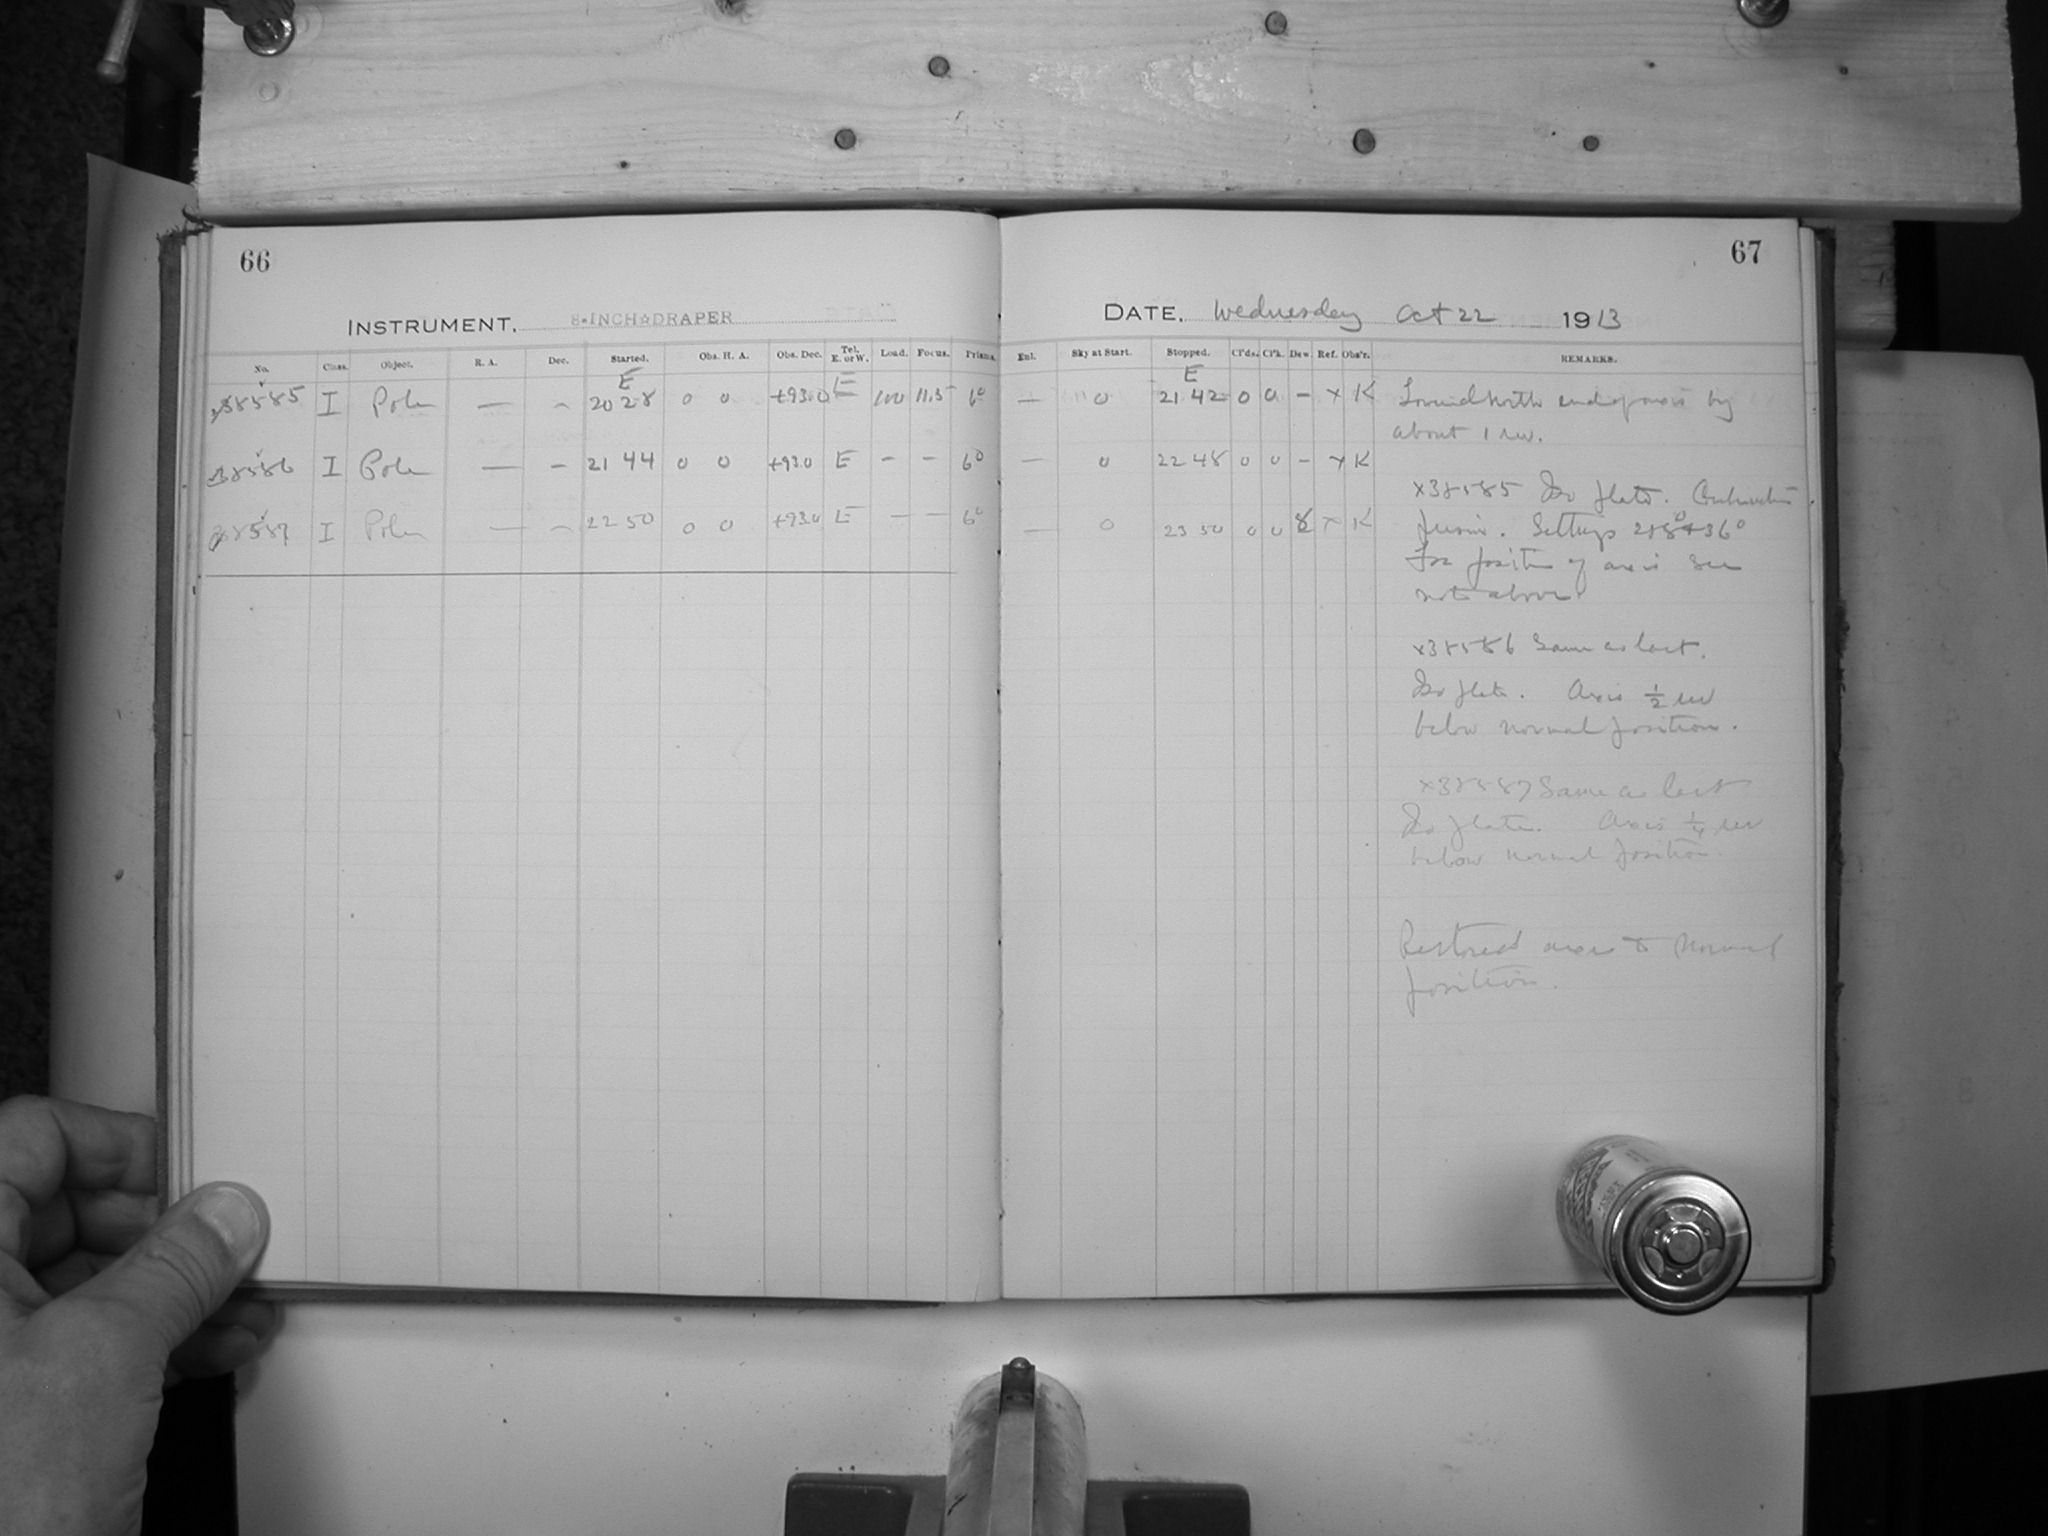 66
INSTRUMENT. 8-INCH☆DRAPER
No. Class. Object. R. A. Dec. Started. Obs. H. A. Obs. Dec. Tel. E. or W. Load. Focus. Prisms.
E
38585 I Pole — — 20 28 0 0 +93.0 E 100 11.5 6°
38586 I Pole — — 21 44 0 0 +93.0 E — — 6°
38587 I Pole — — 22 50 0 0 +93.0 E — — 6°
67
DATE. Wednesday Oct 22 1913
Enl. Sky at Start. Stopped. Cl'ds. Cl'k. Dew. Ref. Obs'r. REMARKS.
E
— 0 21 42 0 0 — × K North end of axis by
about 1 rev.
— 0 22 48 0 0 — × K
×38585 Iso plate.
— 0 23 50 0 0 8 × K Settings
For position of axis see
note above.
×38586 Same as last.
Iso plate. Axis 1/2 rev
below normal position.
×38587 Same as last
Iso plate. Axis 1/4 rev
below normal position.
Restored axis to normal
position.